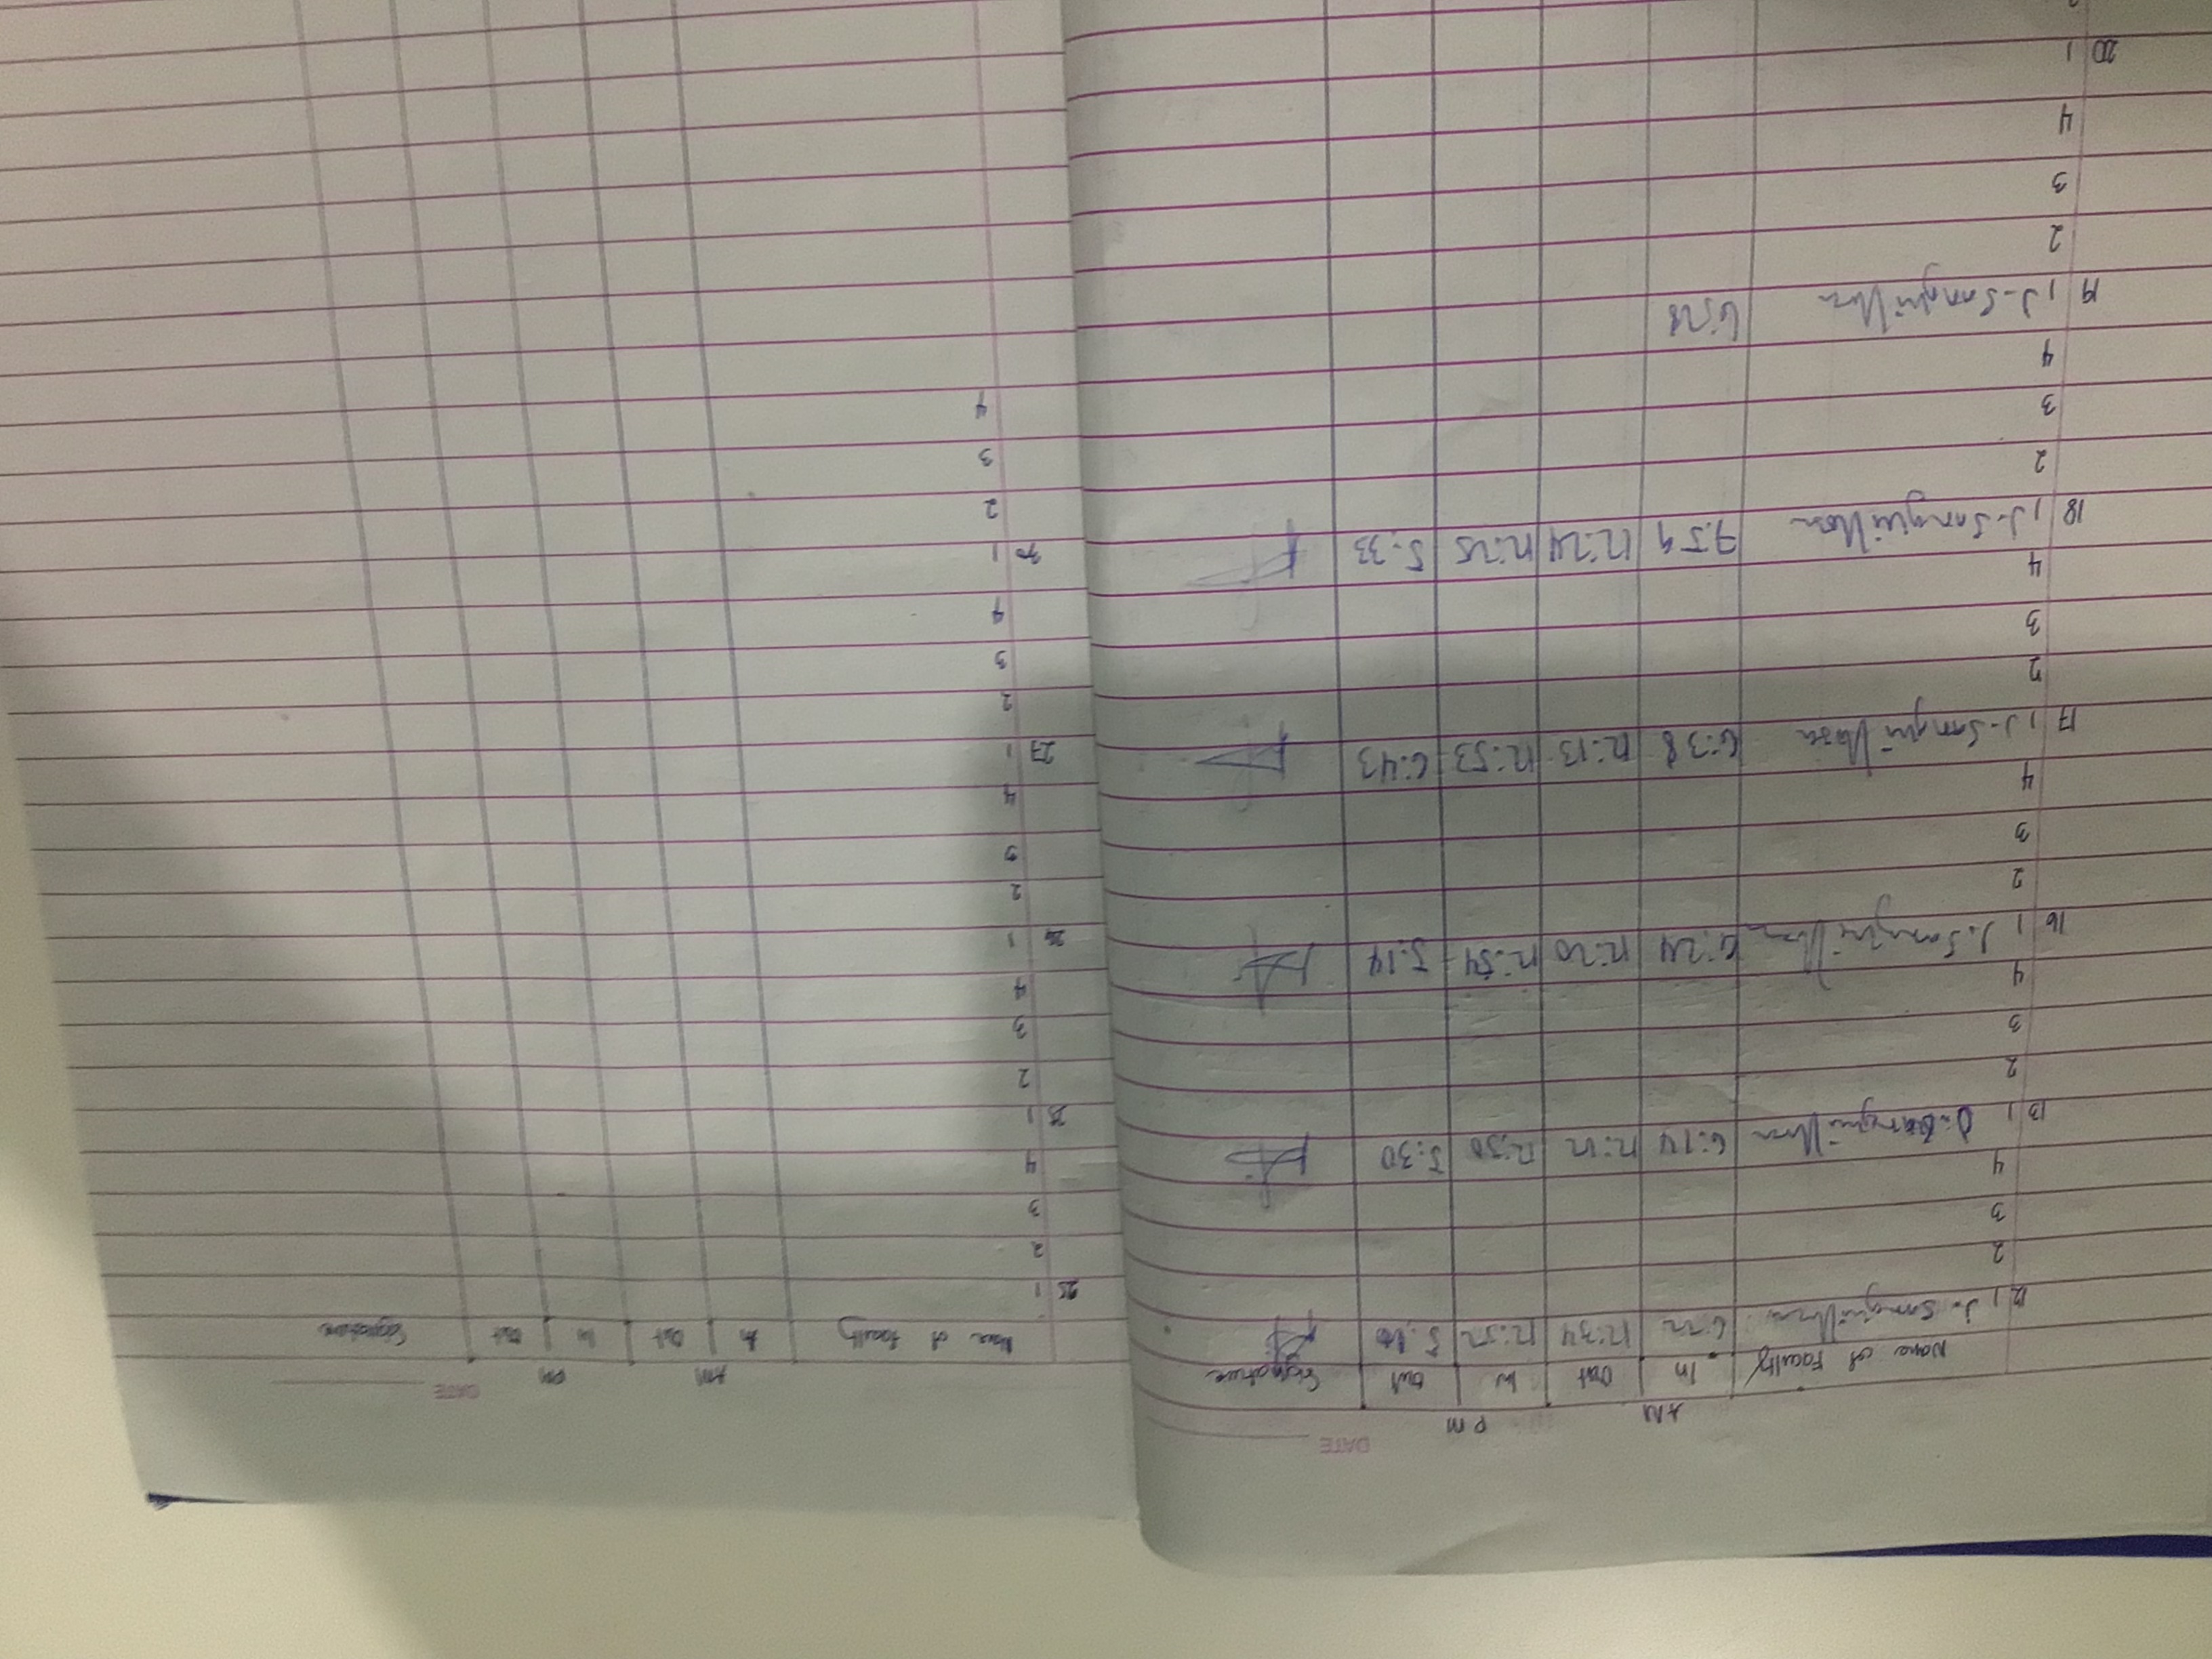 DATE
AM PM
Name of Faculty In Out In Out Signature
12 1 J. Sanguillosa 6:22 12:34 12:52
2
3
4
13 1 Sanguillosa 6:14 12:12 12:50 5:30
2
3
4
16 1 J. Sanguillosa 6:24 12:20 12:54 5:14
2
3
4
17 1 J. Sanguillosa 6:38 12:13 12:53 6:43
2
3
4
18 1 J. Sanguillosa 7:59 12:24 12:25 5:33
2
3
4
19 1 J. Sanguillosa 6:28
2
3
4
20 1
DATE
AM PM
Name of Faculty In Out In Out Signature
1
2
3
4
25 1
2
3
4
26 1
2
3
4
27 1
2
3
4
30 1
2
3
4